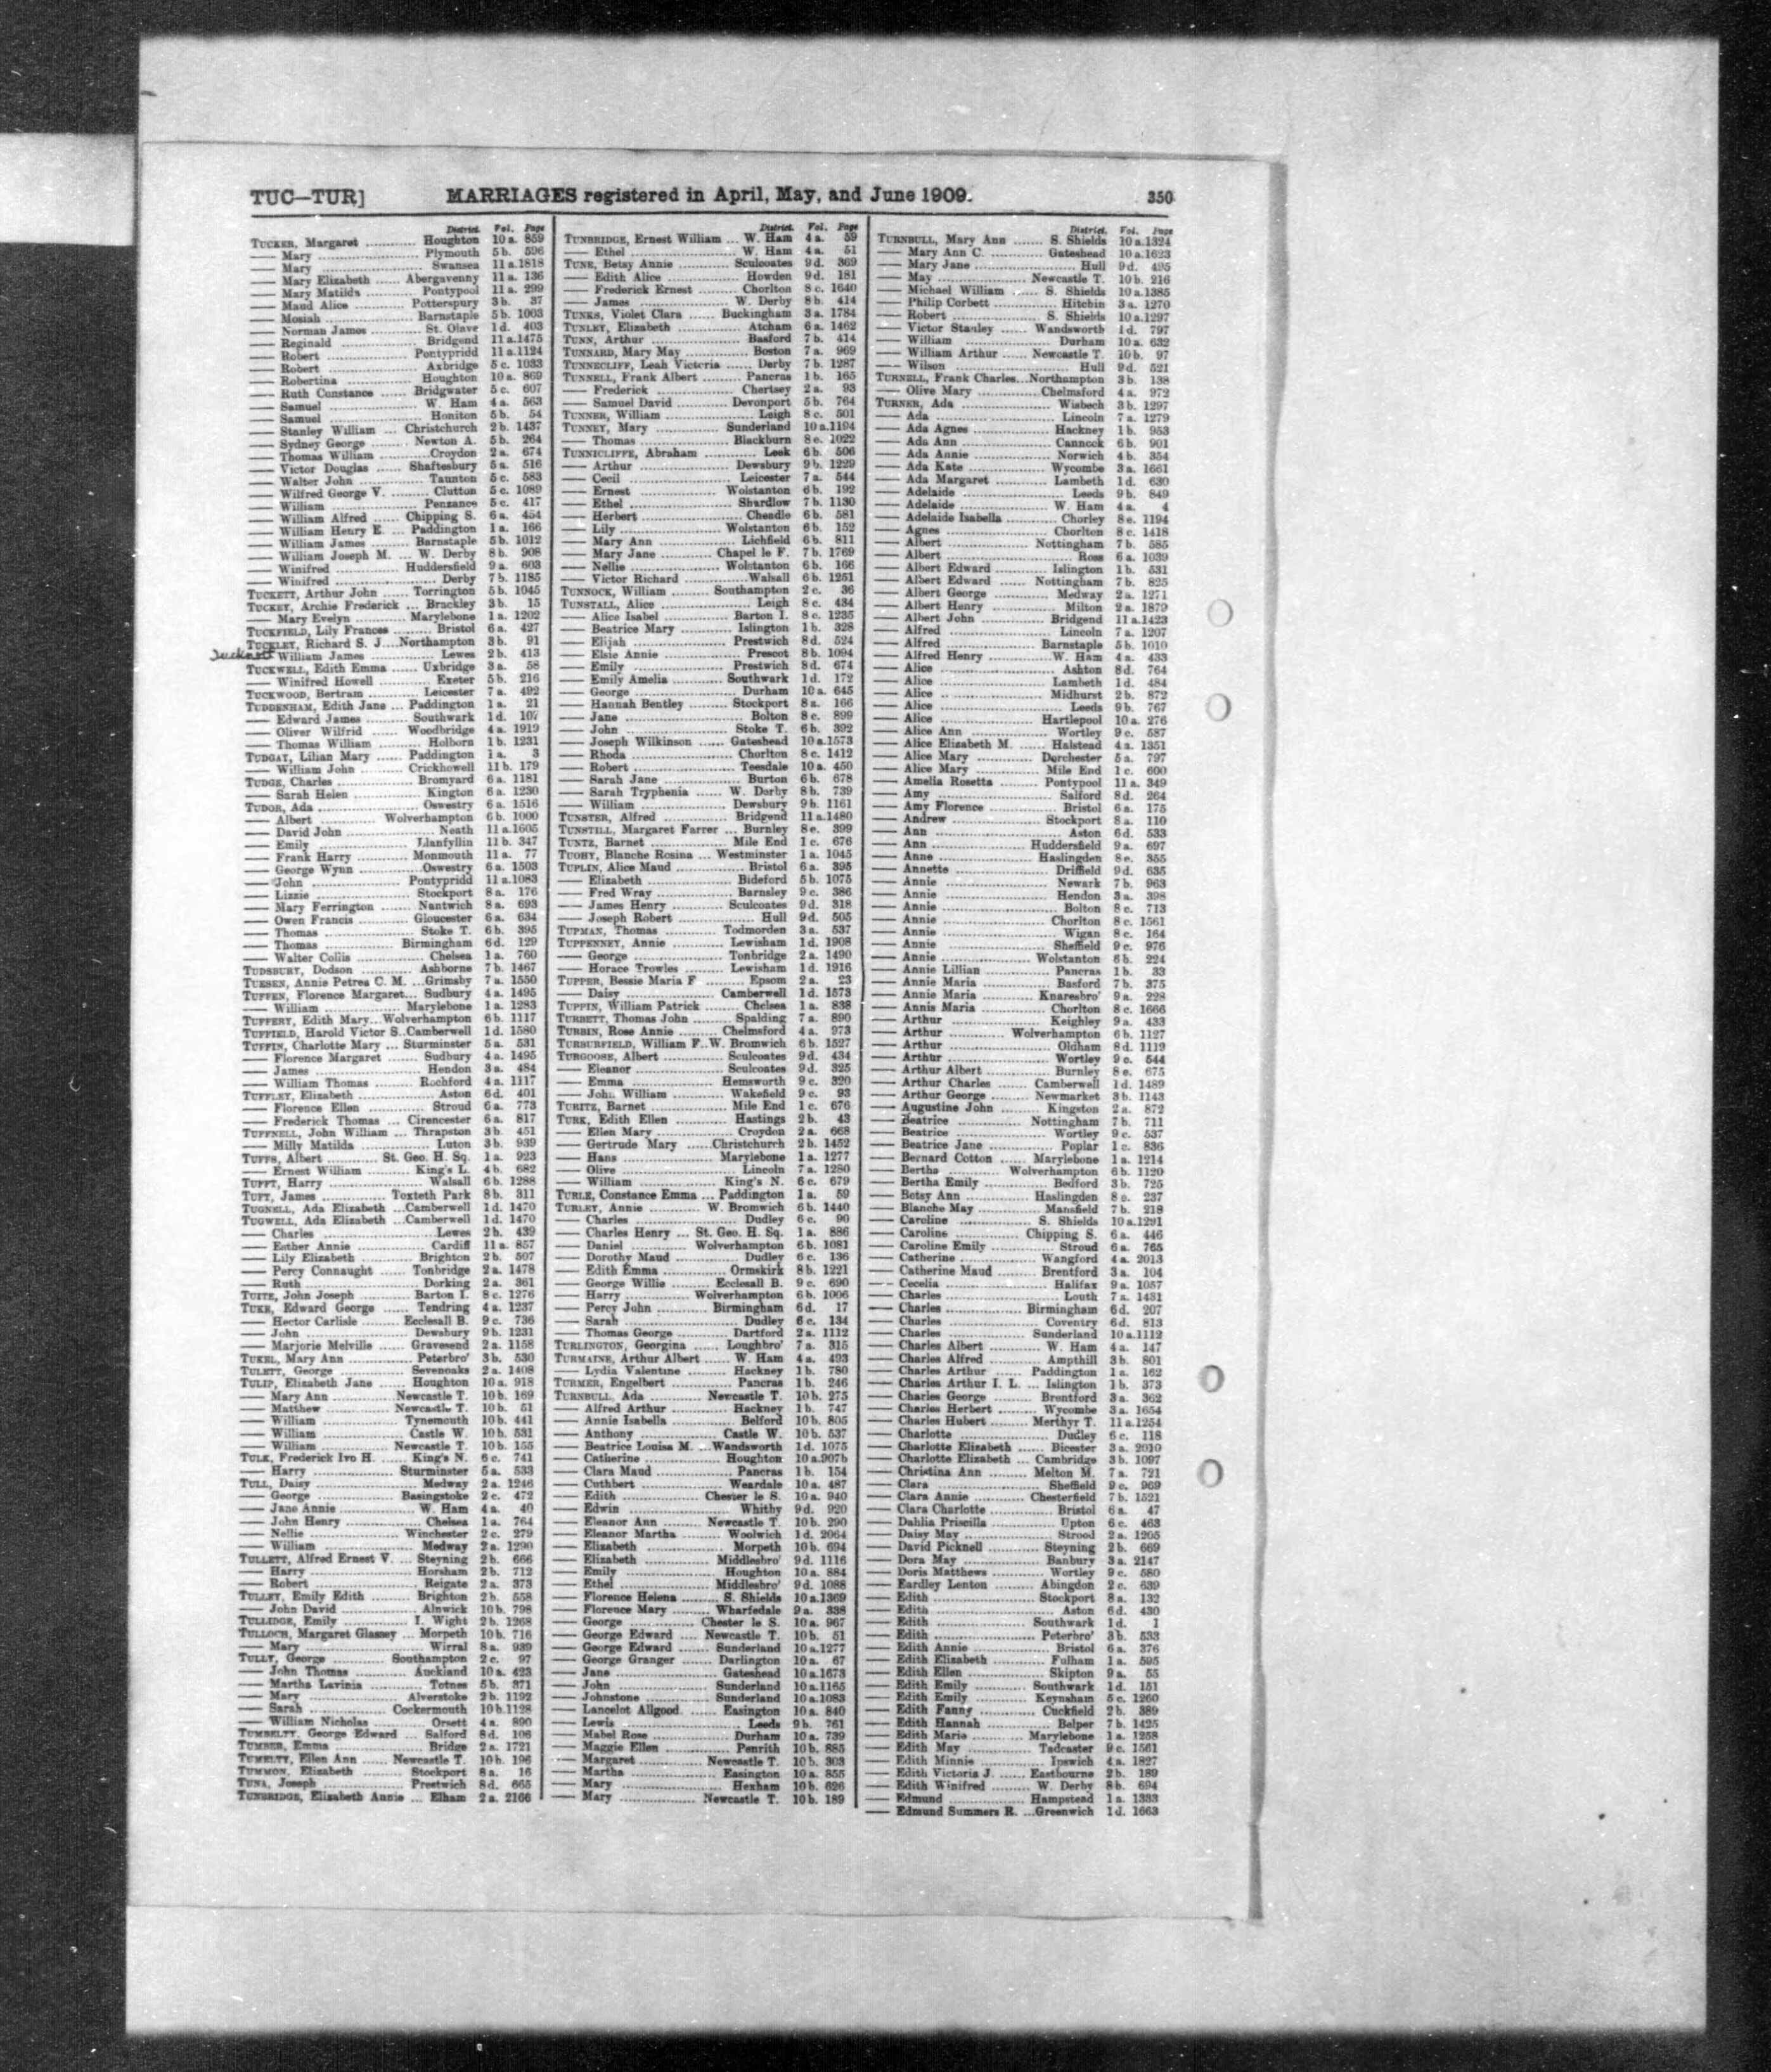 TUC—TUR] MARRIAGES registered in April, May, and June 1909. 350
District. Vol. Page
TUCKER, Margaret ............ Houghton 10 a. 859
—— Mary ..................... Plymouth 5 b. 596
—— Mary ..................... Swansea 11 a. 1818
—— Mary Elizabeth ...... Abergavenny 11 a. 136
—— Mary Matilda ............ Pontypool 11 a. 299
—— Maud Alice ............ Potterspury 3 b. 37
—— Mosiah .................. Barnstaple 5 b. 1063
—— Norman James ............ St. Olave 1 d. 403
—— Reginald .................. Bridgend 11 a. 1475
—— Robert .................. Pontypridd 11 a. 1124
—— Robert .................. Axbridge 5 c. 1033
—— Robertina ............... Houghton 10 a. 869
—— Ruth Constance ...... Bridgwater 5 c. 607
—— Samuel .................. W. Ham 4 a. 563
—— Samuel .................. Honiton 5 b. 54
—— Stanley William ... Christchurch 2 b. 1437
—— Sydney George ...... Newton A. 5 b. 264
—— Thomas William ......... Croydon 2 a. 674
—— Victor Douglas ...... Shaftesbury 5 a. 516
—— Walter John ............ Taunton 5 c. 583
—— Wilfred George V. ...... Clutton 5 c. 1089
—— William .................. Penzance 5 c. 417
—— William Alfred ...... Chipping S. 6 a. 454
—— William Henry E. ... Paddington 1 a. 166
—— William James ......... Barnstaple 5 b. 1012
—— William Joseph M. ... W. Derby 8 b. 908
—— Winifred ............ Huddersfield 9 a. 603
—— Winifred .................. Derby 7 b. 1185
TUCKETT, Arthur John ...... Torrington 5 b. 1045
TUCKEY, Archie Frederick ... Brackley 3 b. 15
—— Mary Evelyn ......... Marylebone 1 a. 1202
TUCKFIELD, Lily Frances ......... Bristol 6 a. 427
TUCKLEY, Richard S. J....Northampton 3 b. 91
Tucknott William James ............ Lewes 2 b. 413
TUCKWELL, Edith Emma ...... Uxbridge 3 a. 58
—— Winifred Howell ......... Exeter 5 b. 216
TUCKWOOD, Bertram ............ Leicester 7 a. 492
TUDDENHAM, Edith Jane ... Paddington 1 a. 21
—— Edward James ......... Southwark 1 d. 107
—— Oliver Wilfrid ...... Woodbridge 4 a. 1919
—— Thomas William ......... Holborn 1 b. 1231
TUDGAY, Lilian Mary ...... Paddington 1 a. 3
—— William John ......... Crickhowell 11 b. 179
TUDGE, Charles .................. Bromyard 6 a. 1181
—— Sarah Helen ............ Kington 6 a. 1230
TUDOR, Ada ..................... Oswestry 6 a. 1516
—— Albert ............ Wolverhampton 6 b. 1000
—— David John ............... Neath 11 a. 1605
—— Emily .................. Llanfyllin 11 b. 347
—— Frank Harry ......... Monmouth 11 a. 77
—— George Wynn ............ Oswestry 6 a. 1503
—— John .................. Pontypridd 11 a. 1083
—— Lizzie .................. Stockport 8 a. 176
—— Mary Ferrington ...... Nantwich 8 a. 693
—— Owen Francis ......... Gloucester 6 a. 634
—— Thomas .................. Stoke T. 6 b. 395
—— Thomas ............... Birmingham 6 d. 129
—— Walter Collis ............ Chelsea 1 a. 760
TUDSBURY, Dodson ............ Ashborne 7 b. 1467
TUESEN, Annie Petrea C. M. ...Grimsby 7 a. 1550
TUFFEN, Florence Margaret... Sudbury 4 a. 1495
—— William ............... Marylebone 1 a. 1283
TUFFERY, Edith Mary...Wolverhampton 6 b. 1117
TUFFIELD, Harold Victor S..Camberwell 1 d. 1580
TUFFIN, Charlotte Mary ... Sturminster 5 a. 531
—— Florence Margaret ...... Sudbury 4 a. 1495
—— James .................. Hendon 3 a. 484
—— William Thomas ...... Rochford 4 a. 1117
TUFFLEY, Elizabeth ............... Aston 6 d. 401
—— Florence Ellen ............ Stroud 6 a. 773
—— Frederick Thomas ... Cirencester 6 a. 817
TUFFNELL, John William ... Thrapston 3 b. 451
—— Milly Matilda ............ Luton 3 b. 939
TUFFS, Albert ............ St. Geo. H. Sq. 1 a. 923
—— Ernest William ......... King's L. 4 b. 682
TUFFT, Harry .................. Walsall 6 b. 1288
TUFT, James ............... Toxteth Park 8 b. 311
TUGNELL, Ada Elizabeth ...Camberwell 1 d. 1470
TUGWELL, Ada Elizabeth ...Camberwell 1 d. 1470
—— Charles .................. Lewes 2 b. 439
—— Esther Annie ............ Cardiff 11 a. 857
—— Lily Elizabeth ......... Brighton 2 b. 507
—— Percy Connaught ...... Tonbridge 2 a. 1478
—— Ruth .................. Dorking 2 a. 361
TUITE, John Joseph ............ Barton I. 8 c. 1276
TUKE, Edward George ...... Tendring 4 a. 1237
—— Hector Carlisle ...... Ecclesall B. 9 c. 736
—— John .................. Dewsbury 9 b. 1231
—— Marjorie Melville ...... Gravesend 2 a. 1158
TUKEL, Mary Ann ............ Peterbro' 3 b. 530
TULETT, George ............... Sevenoaks 2 a. 1408
TULIP, Elizabeth Jane ...... Houghton 10 a. 918
—— Mary Ann ......... Newcastle T. 10 b. 169
—— Matthew ............ Newcastle T. 10 b. 51
—— William ............... Tynemouth 10 b. 441
—— William ............... Castle W. 10 b. 531
—— William ............ Newcastle T. 10 b. 155
TULK, Frederick Ivo H. ...... King's N. 6 c. 741
—— Harry ............... Sturminster 5 a. 533
TULL, Daisy ..................... Medway 2 a. 1246
—— George ............... Basingstoke 2 c. 472
—— Jane Annie ............ W. Ham 4 a. 40
—— John Henry ............ Chelsea 1 a. 764
—— Nellie ............... Winchester 2 c. 279
—— William .................. Medway 2 a. 1290
TULLETT, Alfred Ernest V. ... Steyning 2 b. 666
—— Harry .................. Horsham 2 b. 712
—— Robert .................. Reigate 2 a. 373
TULLEY, Emily Edith ......... Brighton 2 b. 558
—— John David ............ Alnwick 10 b. 798
TULLIDGE, Emily ............... I. Wight 2 b. 1268
TULLOCH, Margaret Glassey ... Morpeth 10 b. 716
—— Mary .................. Wirral 8 a. 939
TULLY, George ............ Southampton 2 c. 97
—— John Thomas ............ Auckland 10 a. 423
—— Martha Lavinia ......... Totnes 5 b. 371
—— Mary ............... Alverstoke 2 b. 1192
—— Sarah ............... Cockermouth 10 b. 1128
—— William Nicholas ......... Orsett 4 a. 890
TUMBELTY, George Edward ... Salford 8 d. 106
TUMBER, Emma .................. Bridge 2 a. 1721
TUMELTY, Ellen Ann ...... Newcastle T. 10 b. 196
TUMMON, Elizabeth ............ Stockport 8 a. 16
TUNA, Joseph .................. Prestwich 8 d. 665
TUNBRIDGE, Elizabeth Annie ... Elham 2 a. 2166
District. Vol. Page
TUNBRIDGE, Ernest William ... W. Ham 4 a. 59
—— Ethel .................. W. Ham 4 a. 51
TUNE, Betsy Annie ............ Sculcoates 9 d. 369
—— Edith Alice ............ Howden 9 d. 181
—— Frederick Ernest ...... Chorlton 8 c. 1640
—— James .................. W. Derby 8 b. 414
TUNKS, Violet Clara ...... Buckingham 3 a. 1784
TUNLEY, Elizabeth ............ Atcham 6 a. 1462
TUNN, Arthur .................. Basford 7 b. 414
TUNNARD, Mary May ............ Boston 7 a. 969
TUNNECLIFF, Leah Victoria ...... Derby 7 b. 1287
TUNNELL, Frank Albert ......... Pancras 1 b. 165
—— Frederick ............... Chertsey 2 a. 93
—— Samuel David ......... Devonport 5 b. 764
TUNNER, William .................. Leigh 8 c. 501
TUNNEY, Mary ............... Sunderland 10 a. 1194
—— Thomas ............... Blackburn 8 e. 1022
TUNNICLIFFE, Abraham ............ Leek 6 b. 506
—— Arthur ............... Dewsbury 9 b. 1229
—— Cecil .................. Leicester 7 a. 544
—— Ernest ............... Wolstanton 6 b. 192
—— Ethel .................. Shardlow 7 b. 1130
—— Herbert .................. Cheadle 6 b. 581
—— Lily .................. Wolstanton 6 b. 152
—— Mary Ann ............ Lichfield 6 b. 811
—— Mary Jane ......... Chapel le F. 7 b. 1769
—— Nellie ............... Wolstanton 6 b. 166
—— Victor Richard ............ Walsall 6 b. 1251
TUNNOCK, William ......... Southampton 2 c. 36
TUNSTALL, Alice .................. Leigh 8 c. 434
—— Alice Isabel ............ Barton I. 8 c. 1235
—— Beatrice Mary ......... Islington 1 b. 328
—— Elijah ............... Prestwich 8 d. 524
—— Elsie Annie ............ Prescot 8 b. 1094
—— Emily .................. Prestwich 8 d. 674
—— Emily Amelia ......... Southwark 1 d. 172
—— George .................. Durham 10 a. 645
—— Hannah Bentley ...... Stockport 8 a. 166
—— Jane .................. Bolton 8 c. 899
—— John .................. Stoke T. 6 b. 392
—— Joseph Wilkinson ...... Gateshead 10 a. 1573
—— Rhoda .................. Chorlton 8 c. 1412
—— Robert .................. Teesdale 10 a. 450
—— Sarah Jane ............ Burton 6 b. 678
—— Sarah Tryphenia ...... W. Derby 8 b. 739
—— William ............... Dewsbury 9 b. 1161
TUNSTER, Alfred ............ Bridgend 11 a. 1480
TUNSTILL, Margaret Farrer ... Burnley 8 e. 399
TUNTZ, Barnet ............... Mile End 1 c. 676
TUOHY, Blanche Rosina ... Westminster 1 a. 1045
TUPLIN, Alice Maud ............ Bristol 6 a. 395
—— Elizabeth ............... Bideford 5 b. 1075
—— Fred Wray ............ Barnsley 9 c. 386
—— James Henry ......... Sculcoates 9 d. 318
—— Joseph Robert ............ Hull 9 d. 505
TUPMAN, Thomas ............ Todmorden 3 a. 537
TUPPENNEY, Annie ............ Lewisham 1 d. 1908
—— George ............... Tonbridge 2 a. 1490
—— Horace Trowles ......... Lewisham 1 d. 1916
TUPPER, Bessie Maria F ......... Epsom 2 a. 23
—— Daisy ............... Camberwell 1 d. 1573
TUPPIN, William Patrick ......... Chelsea 1 a. 838
TURBETT, Thomas John ...... Spalding 7 a. 890
TURBIN, Rose Annie ......... Chelmsford 4 a. 973
TURBURFIELD, William F..W. Bromwich 6 b. 1527
TURGOOSE, Albert ............ Sculcoates 9 d. 434
—— Eleanor ............... Sculcoates 9 d. 325
—— Emma ............... Hemsworth 9 c. 320
—— John William ......... Wakefield 9 c. 93
TURITZ, Barnet ............... Mile End 1 c. 676
TURK, Edith Ellen ............ Hastings 2 b. 43
—— Ellen Mary ............ Croydon 2 a. 668
—— Gertrude Mary ......Christchurch 2 b. 1452
—— Hans ............... Marylebone 1 a. 1277
—— Olive .................. Lincoln 7 a. 1280
—— William ............... King's N. 6 c. 679
TURLE, Constance Emma ... Paddington 1 a. 59
TURLEY, Annie ............ W. Bromwich 6 b. 1440
—— Charles .................. Dudley 6 c. 90
—— Charles Henry ... St. Geo. H. Sq. 1 a. 886
—— Daniel ......... Wolverhampton 6 b. 1081
—— Dorothy Maud ............ Dudley 6 c. 136
—— Edith Emma ............ Ormskirk 8 b. 1221
—— George Willie ...... Ecclesall B. 9 c. 690
—— Harry ............ Wolverhampton 6 b. 1006
—— Percy John ......... Birmingham 6 d. 17
—— Sarah .................. Dudley 6 c. 134
—— Thomas George ......... Dartford 2 a. 1112
TURLINGTON, Georgina ...... Loughbro' 7 a. 315
TURMAINE, Arthur Albert ...... W. Ham 4 a. 493
—— Lydia Valentine ......... Hackney 1 b. 780
TURMER, Engelbert ............ Pancras 1 b. 246
TURNBULL, Ada ............ Newcastle T. 10 b. 275
—— Alfred Arthur ......... Hackney 1 b. 747
—— Annie Isabella ......... Belford 10 b. 805
—— Anthony ............... Castle W. 10 b. 537
—— Beatrice Louisa M. ...Wandsworth 1 d. 1075
—— Catherine ............ Houghton 10 a. 907b
—— Clara Maud ............ Pancras 1 b. 154
—— Cuthbert ............... Weardale 10 a. 487
—— Edith ............ Chester le S. 10 a. 940
—— Edwin .................. Whitby 9 d. 920
—— Eleanor Ann ...... Newcastle T. 10 b. 290
—— Eleanor Martha ......... Woolwich 1 d. 2064
—— Elizabeth ............... Morpeth 10 b. 694
—— Elizabeth ............ Middlesbro' 9 d. 1116
—— Emily .................. Houghton 10 a. 884
—— Ethel ............... Middlesbro' 9 d. 1088
—— Florence Helena ......... S. Shields 10 a. 1369
—— Florence Mary ......... Wharfedale 9 a. 338
—— George ............ Chester le S. 10 a. 967
—— George Edward .... Newcastle T. 10 b. 51
—— George Edward ...... Sunderland 10 a. 1277
—— George Granger ...... Darlington 10 a. 67
—— Jane ............... Gateshead 10 a. 1673
—— John ............... Sunderland 10 a. 1165
—— Johnstone ............ Sunderland 10 a. 1083
—— Lancelot Allgood ...... Easington 10 a. 840
—— Lewis .................. Leeds 9 b. 761
—— Mabel Rose ............ Durham 10 a. 739
—— Maggie Ellen ............ Penrith 10 b. 885
—— Margaret ............ Newcastle T. 10 b. 303
—— Martha ............... Easington 10 a. 855
—— Mary .................. Hexham 10 b. 626
—— Mary ............... Newcastle T. 10 b. 189
District. Vol. Page
TURNBULL, Mary Ann ....... S. Shields 10 a. 1324
—— Mary Ann C. ............ Gateshead 10 a. 1623
—— Mary Jane .................. Hull 9 d. 495
—— May ............... Newcastle T. 10 b. 216
—— Michael William ...... S. Shields 10 a. 1385
—— Philip Corbett ............ Hitchin 3 a. 1270
—— Robert ............... S. Shields 10 a. 1297
—— Victor Stanley ...... Wandsworth 1 d. 797
—— William .................. Durham 10 a. 632
—— William Arthur ...... Newcastle T. 10 b. 97
—— Wilson .................. Hull 9 d. 521
TURNELL, Frank Charles...Northampton 3 b. 138
—— Olive Mary ............ Chelmsford 4 a. 972
TURNER, Ada .................. Wisbech 3 b. 1297
—— Ada .................. Lincoln 7 a. 1279
—— Ada Agnes ............ Hackney 1 b. 953
—— Ada Ann ............... Cannock 6 b. 901
—— Ada Annie ............ Norwich 4 b. 354
—— Ada Kate ............... Wycombe 3 a. 1661
—— Ada Margaret ............ Lambeth 1 d. 630
—— Adelaide .................. Leeds 9 b. 849
—— Adelaide ............... W. Ham 4 a. 4
—— Adelaide Isabella ......... Chorley 8 e. 1194
—— Agnes .................. Chorlton 8 c. 1418
—— Albert ............... Nottingham 7 b. 585
—— Albert .................. Ross 6 a. 1039
—— Albert Edward ......... Islington 1 b. 531
—— Albert Edward ...... Nottingham 7 b. 825
—— Albert George ............ Medway 2 a. 1271
—— Albert Henry ............ Milton 2 a. 1879
—— Albert John ............ Bridgend 11 a. 1423
—— Alfred .................. Lincoln 7 a. 1207
—— Alfred ............... Barnstaple 5 b. 1010
—— Alfred Henry ............W. Ham 4 a. 433
—— Alice .................. Ashton 8 d. 764
—— Alice .................. Lambeth 1 d. 484
—— Alice .................. Midhurst 2 b. 872
—— Alice .................. Leeds 9 b. 767
—— Alice ............... Hartlepool 10 a. 276
—— Alice Ann ............... Wortley 9 c. 587
—— Alice Elizabeth M. ...... Halstead 4 a. 1351
—— Alice Mary ............ Dorchester 5 a. 797
—— Alice Mary ............ Mile End 1 c. 600
—— Amelia Rosetta ......... Pontypool 11 a. 349
—— Amy .................. Salford 8 d. 264
—— Amy Florence ............ Bristol 6 a. 175
—— Andrew ............... Stockport 8 a. 110
—— Ann .................. Aston 6 d. 533
—— Ann ............... Huddersfield 9 a. 697
—— Anne ............... Haslingden 8 e. 355
—— Annette ............... Driffield 9 d. 635
—— Annie .................. Newark 7 b. 963
—— Annie .................. Hendon 3 a. 398
—— Annie .................. Bolton 8 c. 713
—— Annie .................. Chorlton 8 c. 1561
—— Annie .................. Wigan 8 c. 164
—— Annie .................. Sheffield 9 c. 976
—— Annie ............... Wolstanton 6 b. 224
—— Annie Lillian ............ Pancras 1 b. 33
—— Annie Maria ............ Basford 7 b. 375
—— Annie Maria ......... Knaresbro' 9 a. 228
—— Annis Maria ............ Chorlton 8 c. 1666
—— Arthur .................. Keighley 9 a. 433
—— Arthur ............ Wolverhampton 6 b. 1127
—— Arthur .................. Oldham 8 d. 1119
—— Arthur .................. Wortley 9 c. 544
—— Arthur Albert ............ Burnley 8 e. 675
—— Arthur Charles ...... Camberwell 1 d. 1489
—— Arthur George ...... Newmarket 3 b. 1143
—— Augustine John ......... Kingston 2 a. 872
—— Beatrice ............ Nottingham 7 b. 711
—— Beatrice ............... Wortley 9 c. 537
—— Beatrice Jane ............ Poplar 1 c. 836
—— Bernard Cotton ...... Marylebone 1 a. 1214
—— Bertha ......... Wolverhampton 6 b. 1120
—— Bertha Emily ............ Bedford 3 b. 725
—— Betsy Ann ............ Haslingden 8 e. 237
—— Blanche May ......... Mansfield 7 b. 218
—— Caroline ............... S. Shields 10 a. 1291
—— Caroline ............ Chipping S. 6 a. 446
—— Caroline Emily ............ Stroud 6 a. 765
—— Catherine ............ Wangford 4 a. 2013
—— Catherine Maud ...... Brentford 3 a. 104
—— Cecelia .................. Halifax 9 a. 1057
—— Charles .................. Louth 7 a. 1481
—— Charles ............... Birmingham 6 d. 207
—— Charles .................. Coventry 6 d. 813
—— Charles ............... Sunderland 10 a. 1112
—— Charles Albert ......... W. Ham 4 a. 147
—— Charles Alfred ......... Ampthill 3 b. 801
—— Charles Arthur ...... Paddington 1 a. 162
—— Charles Arthur I. L. ... Islington 1 b. 373
—— Charles George ......... Brentford 3 a. 362
—— Charles Herbert ......... Wycombe 3 a. 1654
—— Charles Hubert ......... Merthyr T. 11 a. 1254
—— Charlotte ............... Dudley 6 c. 118
—— Charlotte Elizabeth ...... Bicester 3 a. 2010
—— Charlotte Elizabeth ... Cambridge 3 b. 1097
—— Christina Ann ......... Melton M. 7 a. 721
—— Clara .................. Sheffield 9 c. 969
—— Clara Annie ......... Chesterfield 7 b. 1521
—— Clara Charlotte ......... Bristol 6 a. 47
—— Dahlia Priscilla ............ Upton 6 c. 463
—— Daisy May ............... Strood 2 a. 1205
—— David Picknell ......... Steyning 2 b. 669
—— Dora May ............... Banbury 3 a. 2147
—— Doris Matthews ......... Wortley 9 c. 580
—— Eardley Lenton ......... Abingdon 2 c. 639
—— Edith .................. Stockport 8 a. 132
—— Edith .................. Aston 6 d. 430
—— Edith ............... Southwark 1 d. 1
—— Edith ............... Peterbro' 3 b. 533
—— Edith Annie ............ Bristol 6 a. 376
—— Edith Elizabeth ......... Fulham 1 a. 595
—— Edith Ellen ............ Skipton 9 a. 55
—— Edith Emily ......... Southwark 1 d. 151
—— Edith Emily ......... Keynsham 5 c. 1260
—— Edith Fanny ......... Cuckfield 2 b. 389
—— Edith Hannah ............ Belper 7 b. 1425
—— Edith Maria ......... Marylebone 1 a. 1258
—— Edith May ............ Tadcaster 9 c. 1561
—— Edith Minnie ............ Ipswich 4 a. 1827
—— Edith Victoria J. ...... Eastbourne 2 b. 189
—— Edith Winifred ......... W. Derby 8 b. 694
—— Edmund ............... Hampstead 1 a. 1333
—— Edmund Summers R. ...Greenwich 1 d. 1663